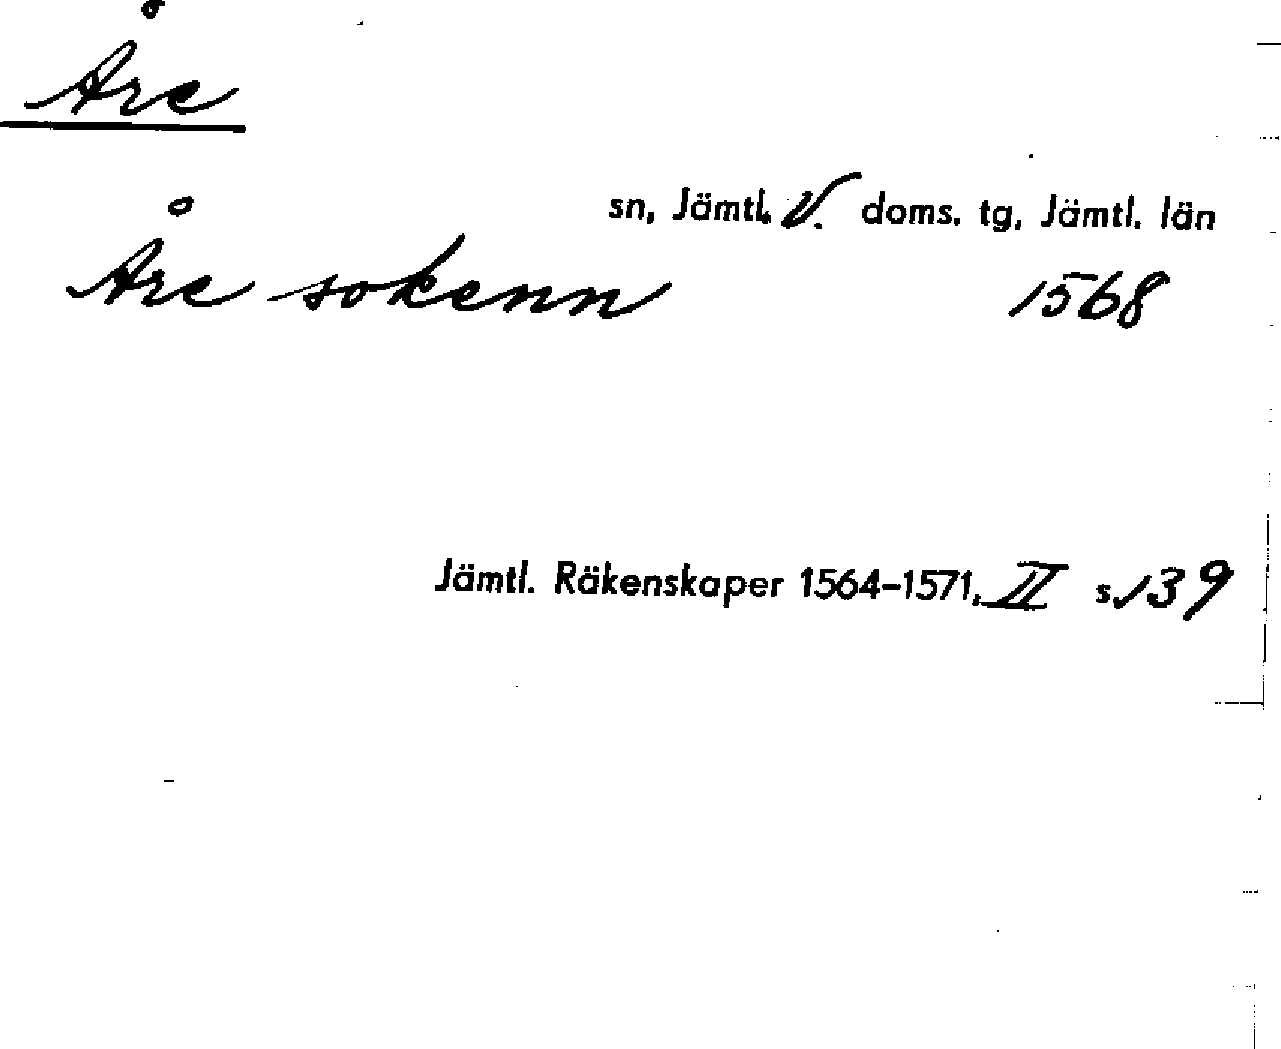 Åre
sn, Jämtl. V. doms. tg, Jämtl. län
Åre sokenn 1568
Jämtl. Räkenskaper 1564-1571, II s. 139